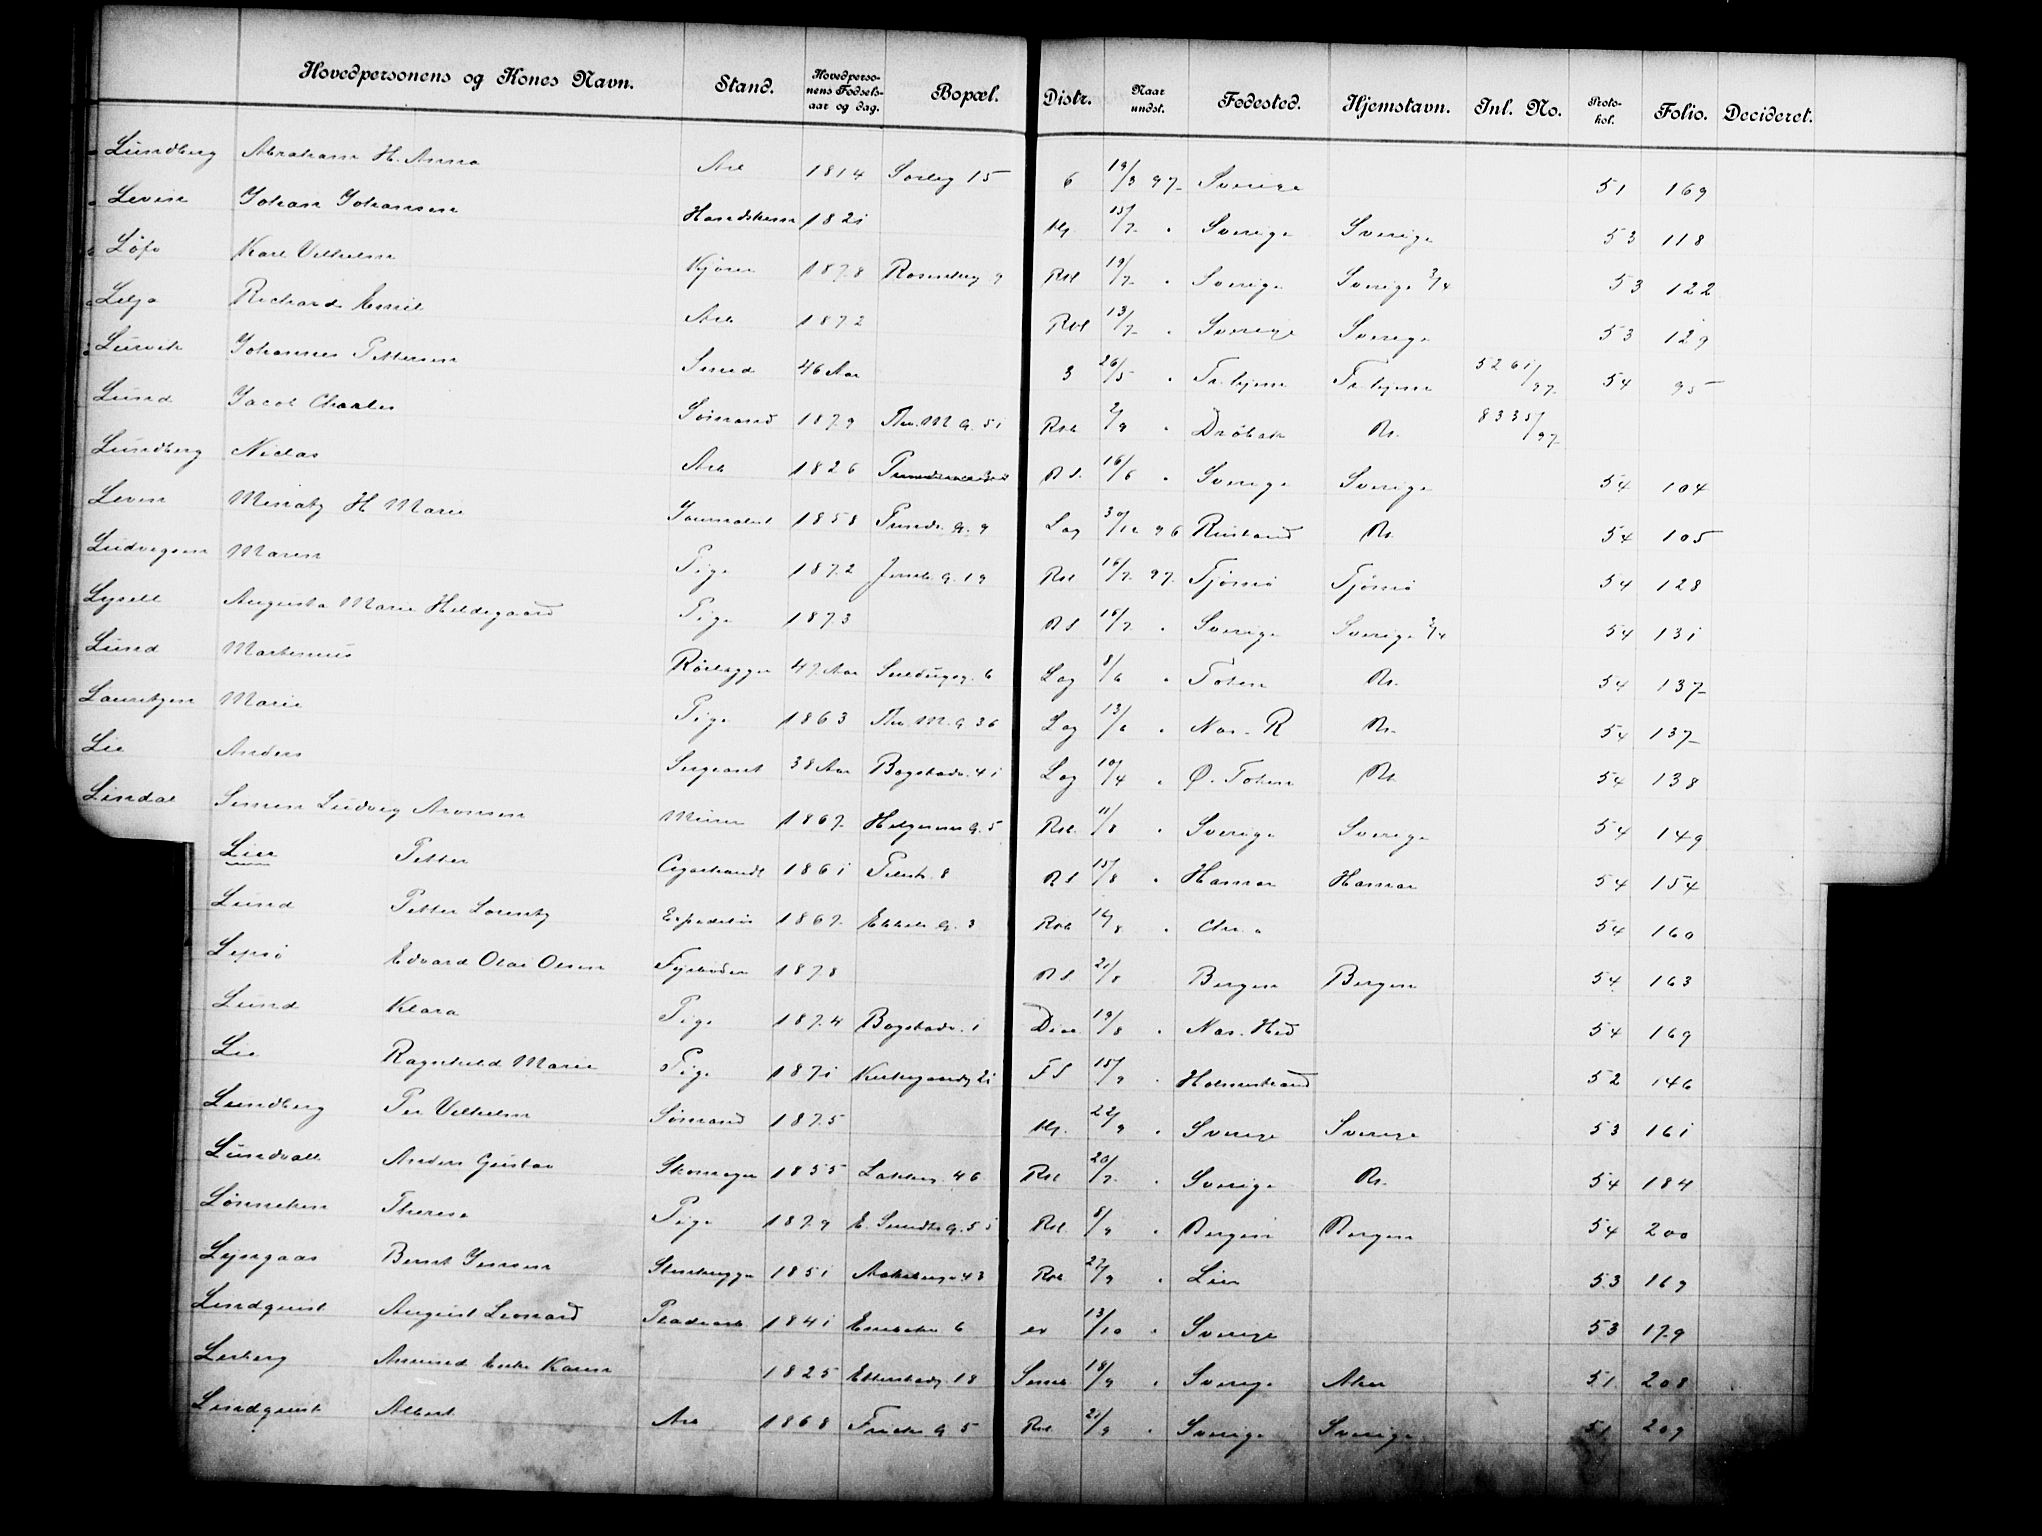 Hovedpersonens og Kones Navn. Stand. Hovedpersonens Fødselsaar og dag. Bopæl. Distr. Naar undst. Fødested. Hjemstavn. Inl. No. Protokol. Folio. Decideret.
Lundberg Abraham H. Anna Arb 1814 Sorbg 15 6 19/3 97 Sverige 51 169
Levin Johan Johansen Handskem 1821 15/7 " Sverige Sverige 53 118
Løfv Karl Vilhelm Kjører 1878 Rosenbrg 9 Rst 19/7 " Sverige Sverige 3/4 53 122
Lilja Richard Emil Arb 1872 Rst 13/7 " Sverige Sverige 53 129
Lurvik Johannes Pettersen Smed 46 Aar 3 26/5 " Tr.hjem Tr.hjem 5261/97 54 95
Lund Jacob Charles Sømand 1879 Thv. M G. 51 Rst 2/9 " Drøbak Kr. 8335/97
Lundberg Niclas Arb 1826 R S. 16/6 " Sverige Sverige 54 104
Levin H Marie Journalist 1858 G. 9 Lag 30/12 96 Rusland Kr. 54 105
Ludvigsen Maren Pige 1872 G. 19 Rst 16/7 97 Tjømø Tjømø 54 128
Lysell Augusta Marie Hildegaard Pige 1873 R S 16/7 " Sverige Sverige 3/4 54 131
Lund Martinius Rørlægger 47 Aar 6 Lag 8/6 " Toten Kr. 54 137
Lauritzen Marie Pige 1863 Thv. M. G 36 Lag 13/6 " Nas. R Kr. 54 137
Lie Anders Sergeant 38 Aar Bogstadv. 41 Lag 10/4 " Ø. Toten Kr. 54 138
Lindal Simen Ludvig Aronsen Murer 1867 Helgesens G. 5 Rst. 11/8 " Sverige Sverige 54 149
Lie Petter Cigarhandl 1861 Pilestr. 8 R S 15/8 " Hamar Hamar 54 154
Lund Petter Lorentz Expeditør 1867 G. 3 Rst 16/8 " Chr.a 54 160
Lepsø Edvard Olai Olsen Fyrbøder 1878 R S. 21/8 Bergen Bergen 54 163
Lund Klara Pige 1874 Bogstadv. 1 19/8 " Nas. Hed 54 169
Lie Ragnhild Marie Pige 1871 Kirkegaardg 21 F S 15/9 " Holmestrand 52 146
Lundberg Per Vilhelm Sømand 1875 22/9 " Sverige Sverige 53 161
Lundvall Anders Gustav Skomager 1855 Lakkeg. 46 Rst 20/7 " Sverige Kr. 54 184
Lønneken Therese Pige 1879 E. Sundts G. 55 Rst. 8/9 " Bergen Bergen 54 200
Lysgaas Bernt Jensen Stenhugger 1851 Aakebergv 43 Rst 27/9 " Lier 53 169
Lindquist August Leonard 1841 6 13/10 " Sverige 53 179
Lerberg Karen 1825 Etterstadg 18 18/9 " Sverige Aker 51 208
Lindquist Albert Arb 1868 G 5 Rst 21/9 " Sverige Sverige 51 209